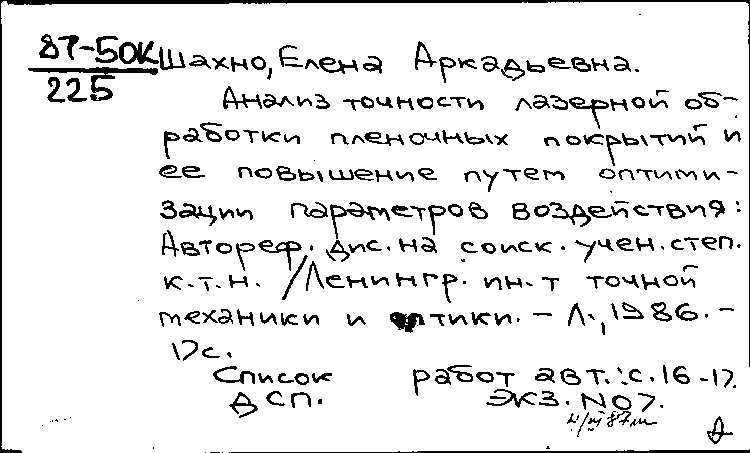 87-50К
225
Шахно, Елена Аркадьевна.
Анализ точности лазерной об-
работки пленочных покрытий и
ее повышение путем оптими-
зации параметров воздействия:
Автореф. дис. на соиск. учен. степ.
к.т.н. / Ленингр. ин-т точной
механики и оптики. - Л., 1986. -
17с.
Список работ авт.: с.16-17.
ДСП. Экз. №7.